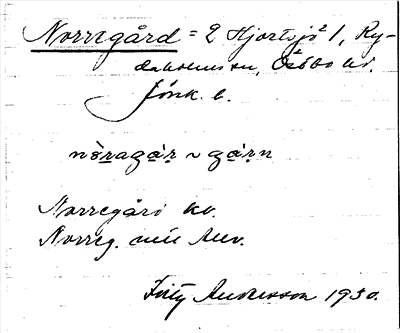 Norregård = 2 Hjortsjö 1, Ry-
daholms sn, Östbo hd.
Jönk. l.
nòragár ~ gárn
Norregård kv.
Norreg.
Fritz Andersson 1930.